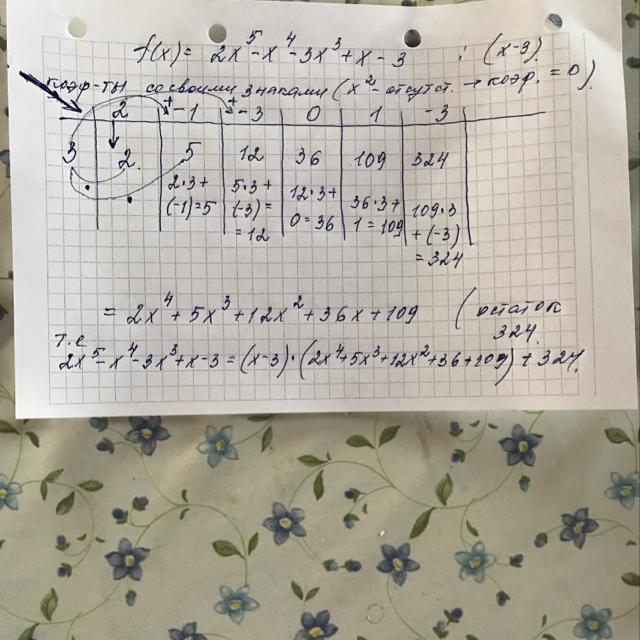 f(x) = 2x⁵ - x⁴ - 3x³ + x - 3 : (x-3)
коэф-ты со своими знаками (x² - отсутст. → коэф. = 0)
2 -1 -3 0 1 -3
3 2 5 12 36 109 324
2·3+ 5·3+ 12·3+ 36·3+ 109·3
(-1)=5 (-3)= 0=36 1=109 +(-3)
=12 =324
= 2x⁴ + 5x³ + 12x² + 36x + 109 (остаток
324.
т.е
2x⁵ - x⁴ - 3x³ + x - 3 = (x-3)·(2x⁴+5x³+12x²+36+109) + 324